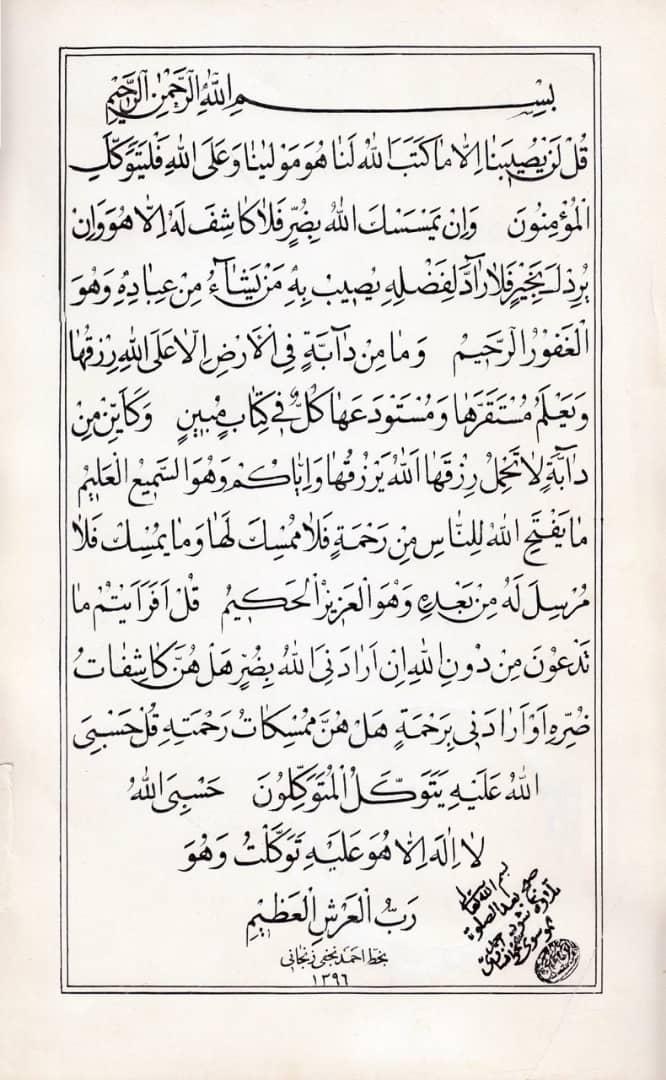 بِسْمِ اللهِ الرَّحْمٰنِ الرَّحِيْمِ
قُلْ لَنْ يُصِيبَنٰا اِلّٰا مٰا كَتَبَ اللهُ لَنٰا هُوَ مَوْلٰينٰا وَ عَلَى اللهِ فَلْيَتَوَكَّلِ
الْمُؤْمِنُونَ وَاِنْ يَمْسَسْكَ اللهُ بِضُرٍّ فَلٰا كٰاشِفَ لَهُ اِلّٰا هُوَ وَاِنْ
يُرِدْكَ بِخَيْرٍ فَلٰا رٰادَّ لِفَضْلِهِ يُصِيبُ بِهِ مَنْ يَشٰآءُ مِنْ عِبٰادِهِ وَهُوَ
الْغَفُورُ الرَّحيٖمُ وَ مٰا مِنْ دٰآبَّةٍ فِي الْاَرْضِ اِلّٰا عَلَى اللهِ رِزْقُهٰا
وَيَعْلَمُ مُسْتَقَرَّهٰا وَمُسْتَوْدَعَهٰا كُلٌّ فيٖ كِتٰابٍ مُبيٖنٍ وَكَاَيِّنْ مِنْ
دٰآبَّةٍ لٰا تَحْمِلُ رِزْقَهَا اللهُ يَرْزُقُهٰا وَاِيّٰاكُمْ وَهُوَ السَّميٖعُ الْعَليٖمُ
مٰا يَفْتَحِ اللهُ لِلنّٰاسِ مِنْ رَحْمَةٍ فَلٰا مُمْسِكَ لَهٰا وَ مٰا يُمْسِكْ فَلٰا
مُرْسِلَ لَهُ مِنْ بَعْدِهِ وَهُوَ الْعَزيٖزُ الْحَكيٖمُ قُلْ اَفَرَاَيْتُمْ مٰا
تَدْعُونَ مِنْ دُونِ اللهِ اِنْ اَرٰادَنِيَ اللهُ بِضُرٍّ هَلْ هُنَّ كٰاشِفٰاتُ
ضُرِّهِ اَوْ اَرٰادَنيٖ بِرَحْمَةٍ هَلْ هُنَّ مُمْسِكٰاتُ رَحْمَتِهِ قُلْ حَسْبِيَ
اللهُ عَلَيْهِ يَتَوَكَّلُ الْمُتَوَكِّلُونَ حَسْبِيَ اللهُ
لٰا اِلٰهَ اِلّٰا هُوَ عَلَيْهِ تَوَكَّلْتُ وَ هُوَ
رَبُّ الْعَرْشِ الْعَظيٖمِ
بخط احمد نجفی زنجانی
١٣٩٦
بسم الله تعالی
صبح بعد الصلوة